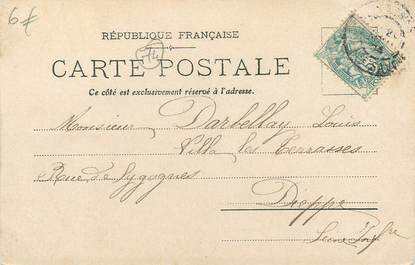 6€
RÉPUBLIQUE FRANÇAISE
74
CARTE POSTALE
Ce côté est exclusivement réservé à l'adresse.
Monsieur Darbellay Louis
Villa les Terrasses
Rue de Sygognes
Dieppe
Seine Infre